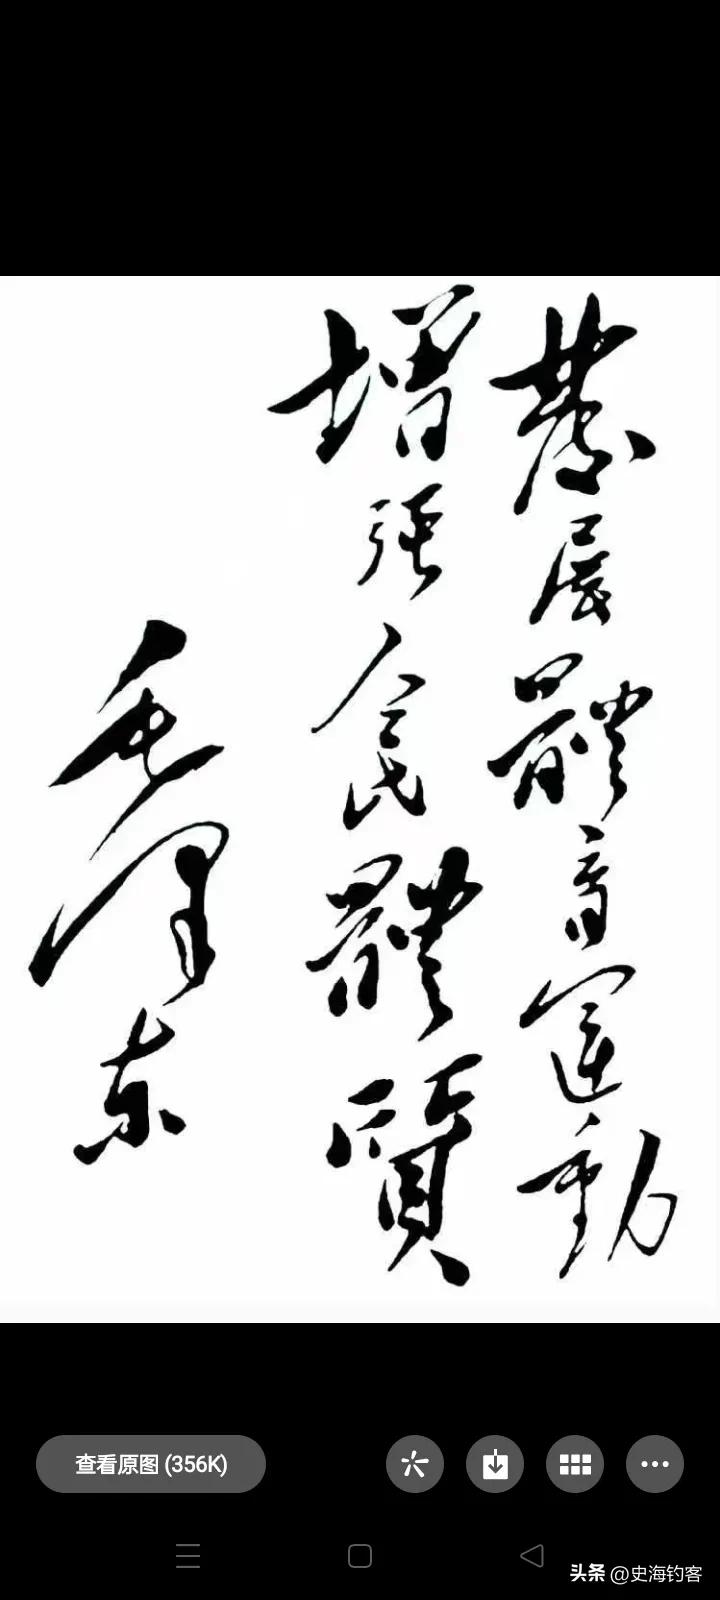 發展體育運動
增强人民體質
毛泽东
查看原图 (356K)
头条 @史海钓客